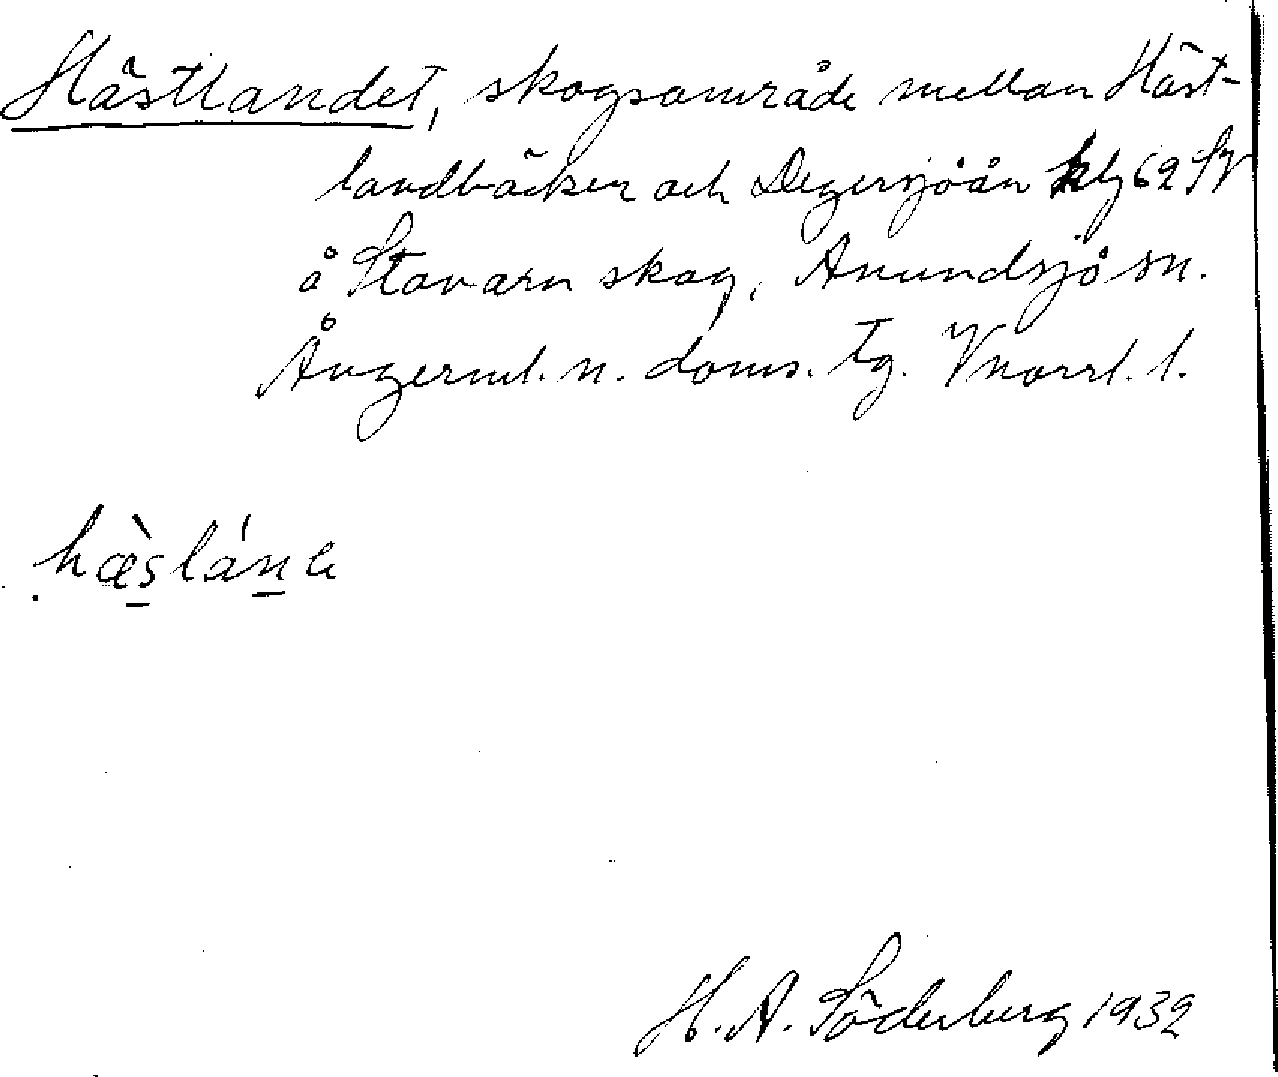 Hästlandet, skogsområde mellan Häst-
landbäcken och Degersjöån kbl 62 SV
å Stavarn skog, Anundsjö sn.
Ångerml. n. doms. tg. Vnorrl. l.
hæslána
H. A. Söderberg 1932